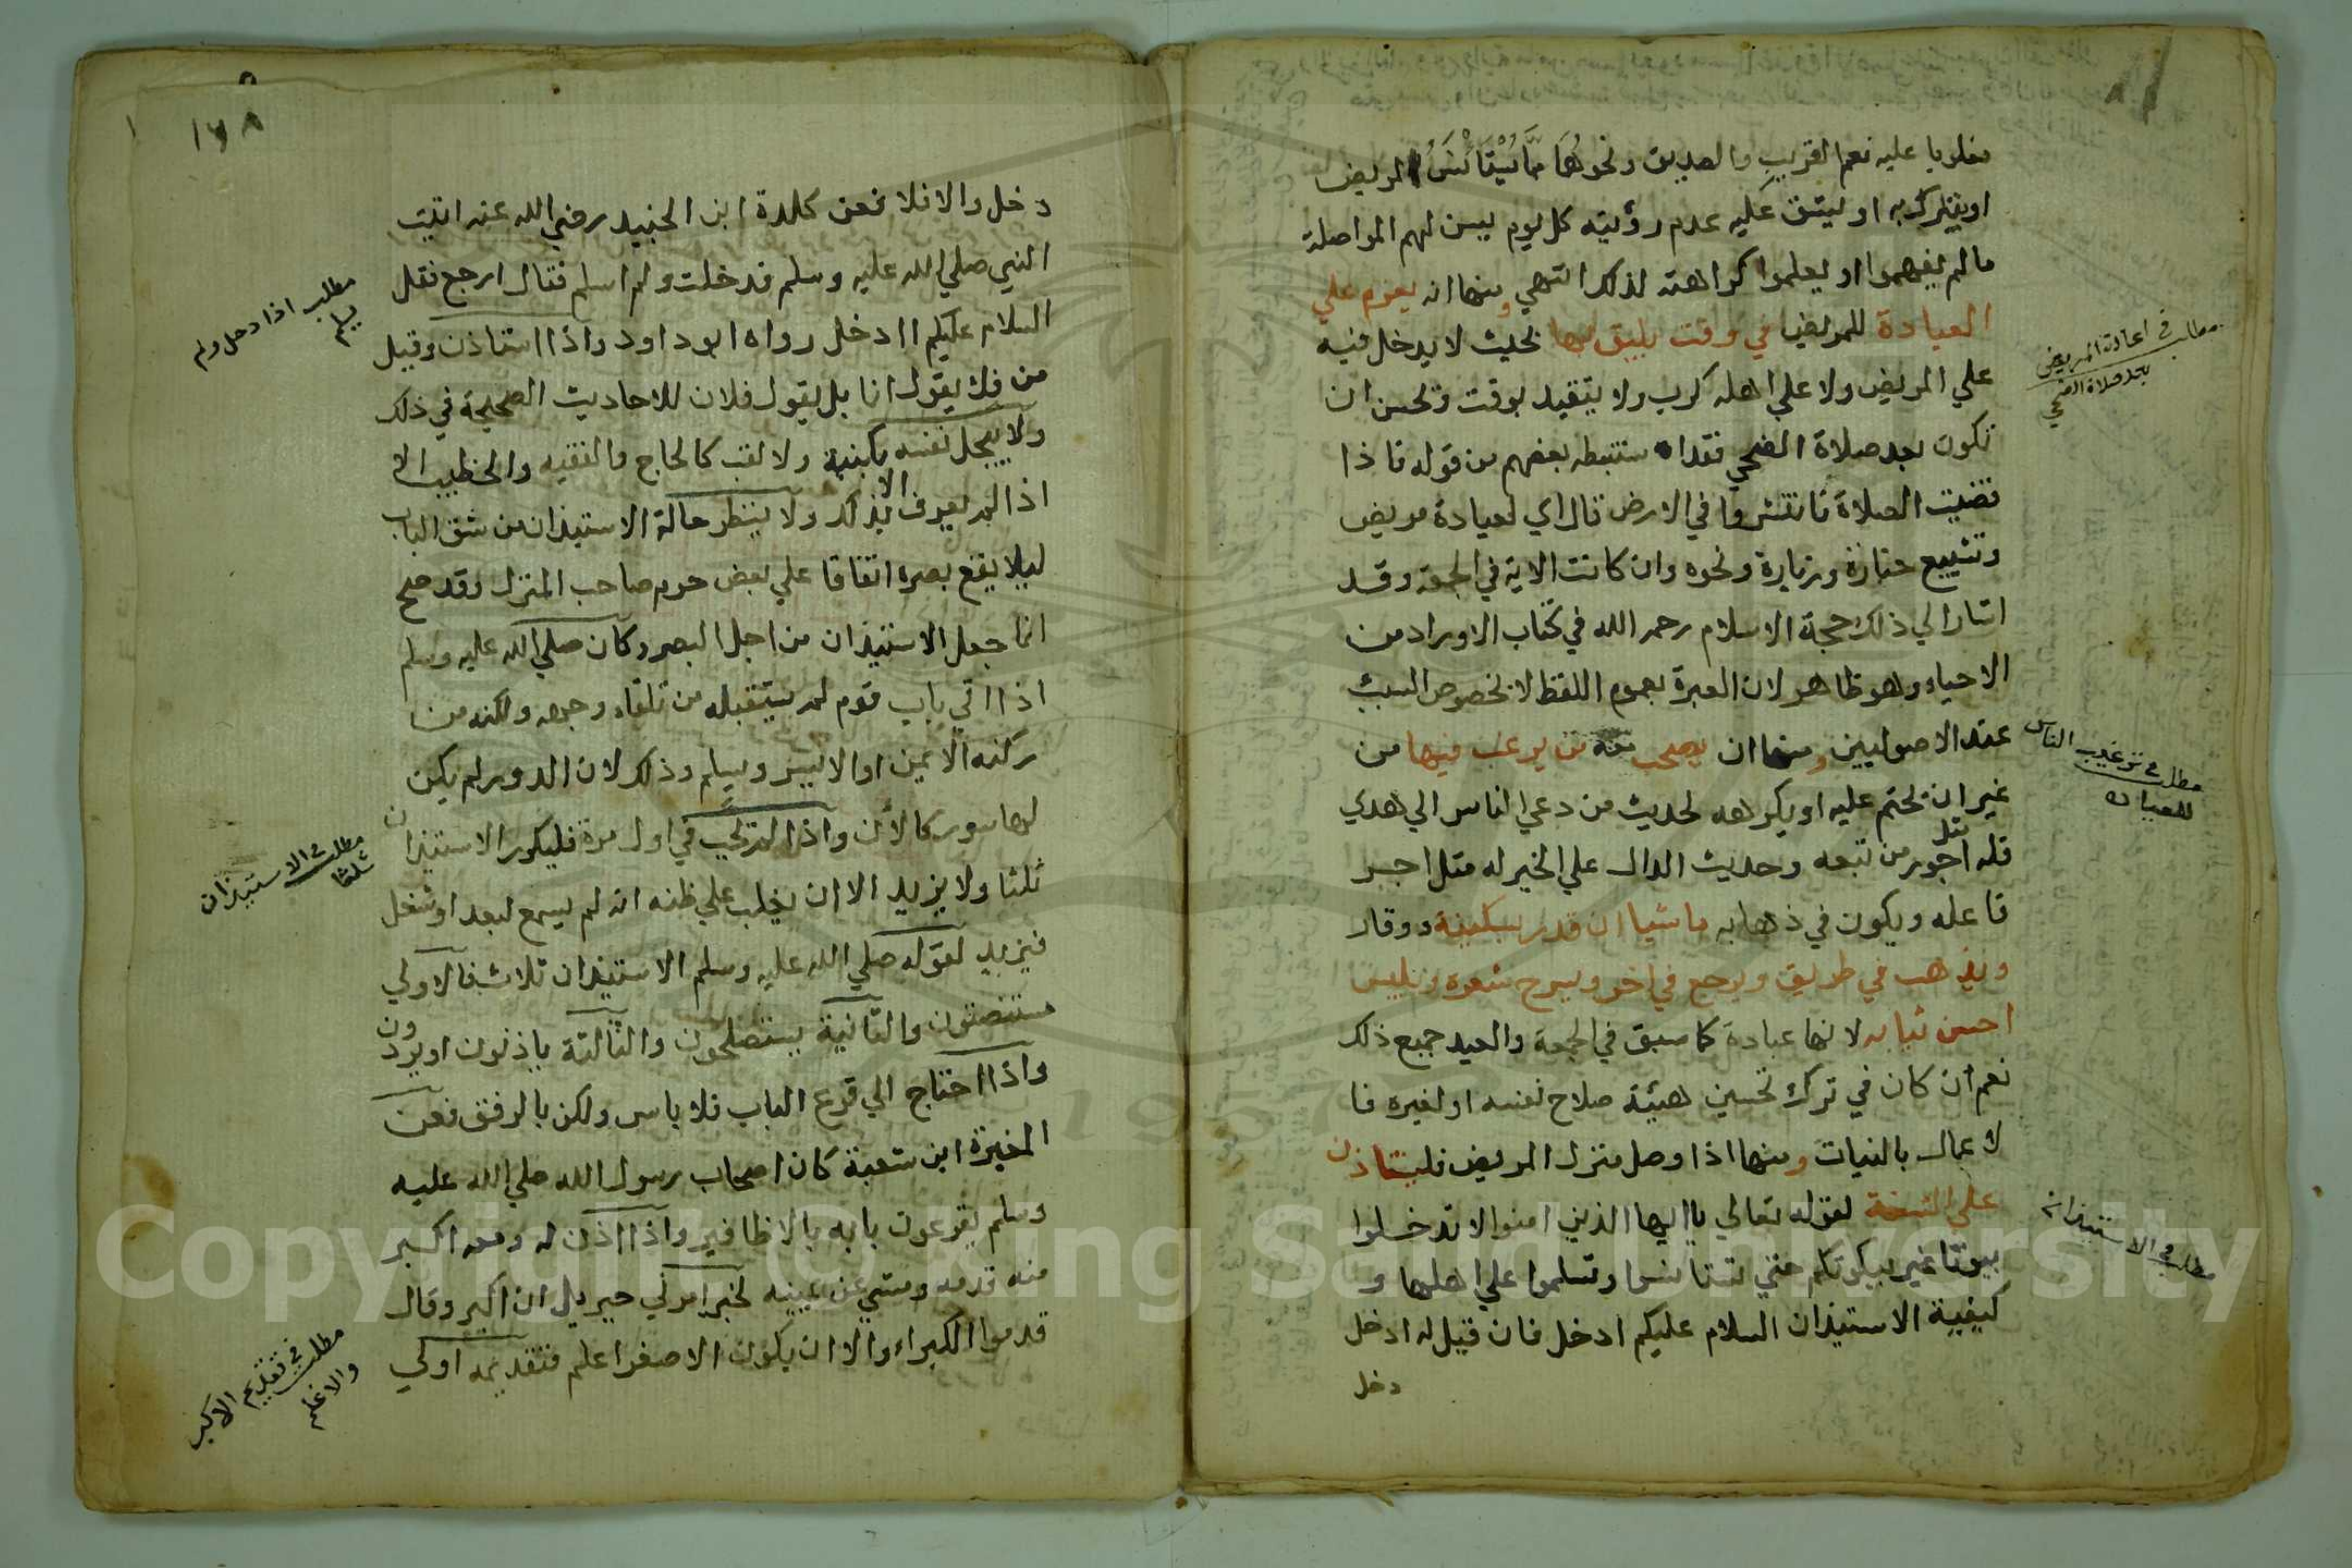 مغلوبا عليه نعم القريب والصديق ونحوهما مما يستأنس المريض
او يتبرك به او ليشق عليه عدم رؤيته كل يوم يسن لهم المواصلة
مالم يفهموا او يعلموا كراهته لذلك انتهي ومنها انه يعزم علي
العيادة للمريض في وقت يليق بها بحيث لا يدخل فيه
علي المريض ولا علي اهله كرب ولا يتقيد بوقت وتحسن ان
تكون بعد صلاة الضحي فقد استنبطه بعضهم من قوله فاذا
قضيت الصلاة فانتشروا في الارض قال اي لعيادة مريض
وتشييع جنازة وزيارة ونحوه وان كانت الاية في الجمعة وقد
اشار الي ذلك حجة الاسلام رحمه الله في كتاب الاوراد من
الاحياء وهو ظاهر لان العبرة بعموم اللفظ لا بخصوص السبب
عند الاصوليين ومنها ان يصحب معه من يرغب فيها من
غير ان يحتم عليه او يكرهه لحديث من دعي الناس الي هدي
فله مثل اجور من تبعه وحديث الدال علي الخير له مثل اجر
فاعله ويكون في ذهابه ماشيا ان قدر بسكينة ووقار
ويذهب في طريق ويرجع في اخر ويسرح شعره ويلبس
احسن ثيابه لانها عبادة كما سبق في الجمعة والعيد جميع ذلك
نعم ان كان في ترك تحسين هيئة صلاح لنفسه او لغيره فا
لاعمال بالنيات ومنها اذا وصل منزل المريض فليستاذن
علي السنة لقوله تعالي ياايها الذين امنوا لا تدخلوا
بيوتا غير بيوتكم حتي تستانسوا وتسلموا علي اهلها و
كيفية الاستيذان السلام عليكم ادخل فان قيل له ادخل
دخل
مطلب في اعادة المريض
بعد صلاة الضحي
مطلب في ترغيب الناس
للعيادة
مطلب في الاستيذان
١٦٨
دخل والا فلا فعن كلدة ابن الحنبيد رضي الله عنه اتيت
النبي صلي الله عليه وسلم فدخلت ولم اسلم فقال ارجع فقل
السلام عليكم اادخل رواه ابوداود واذا استاذن وقيل
من فلا يقول انا بل يقول فلان للاحاديث الصحيحة في ذلك
ولا يبجل نفسه بكنية ولا لقب كالحاج والفقيه والخطيب الا
اذا لم يعرف الا بذلك ولا ينظر حالة الاستيذان من شق الباب
ليلا يقع بصره اتفاقا علي بعض حرم صاحب المنزل وقد صح
انما جعل الاستيذان من اجل البصر وكان صلي الله عليه وسلم
اذا اتي باب قوم لم يستقبله من تلقاء وجهه ولكنه من
ركنه الايمن او الايسر ويسلم وذلك لان الدور لم يكن
لها ستور كالأن واذا لم يجب في اول مرة فليكرر الاستيذان
ثلثا ولا يزيد الا ان يغلب علي ظنه انه لم يسمع لبعد او شغل
فيزيد لقوله صلي الله عليه وسلم الاستيذان ثلاث فالاولي
مستنصتون والثانية يستصلحون والثالثة ياذنون او يردون
واذا احتاج الي قرع الباب فلا باس ولكن بالرفق فعن
المغيرة ابن شعبة كان اصحاب رسول الله صلي الله عليه
وسلم يقرعون بابه بالاظافير واذا اذن له ومعه اكبر
منه قدمه ومشي عن يمينه لخبر امرني جبريل ان اكبر وقال
قدموا الكبراء والا ان يكون الاصغر اعلم فتقديمه اولي
مطلب اذا دخل ولم
يسلم
مطلب في الاستيذان
ثلثا
مطلب في تقديم الاكبر
والاعلم
Copyright © King Saud University
1957